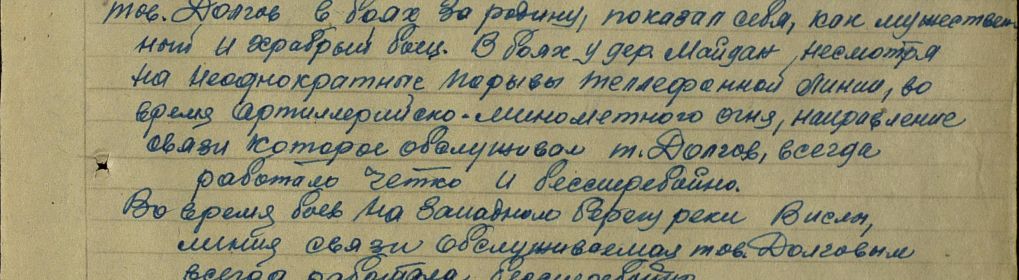 тов. Долгов в боях за родину, показал себя, как мужествен-
ный и храбрый боец. В боях у дер. Майдан, несмотря
на неоднократные порывы телефонной линии, во
время артиллерийско-минометного огня, направление
связи которое обслуживал т. Долгов, всегда
работало четко и бессперебойно.
Во время боев на западном берегу реки Вислы,
линия связи обслуживаемая тов. Долговым
всегда работала бесперебойно